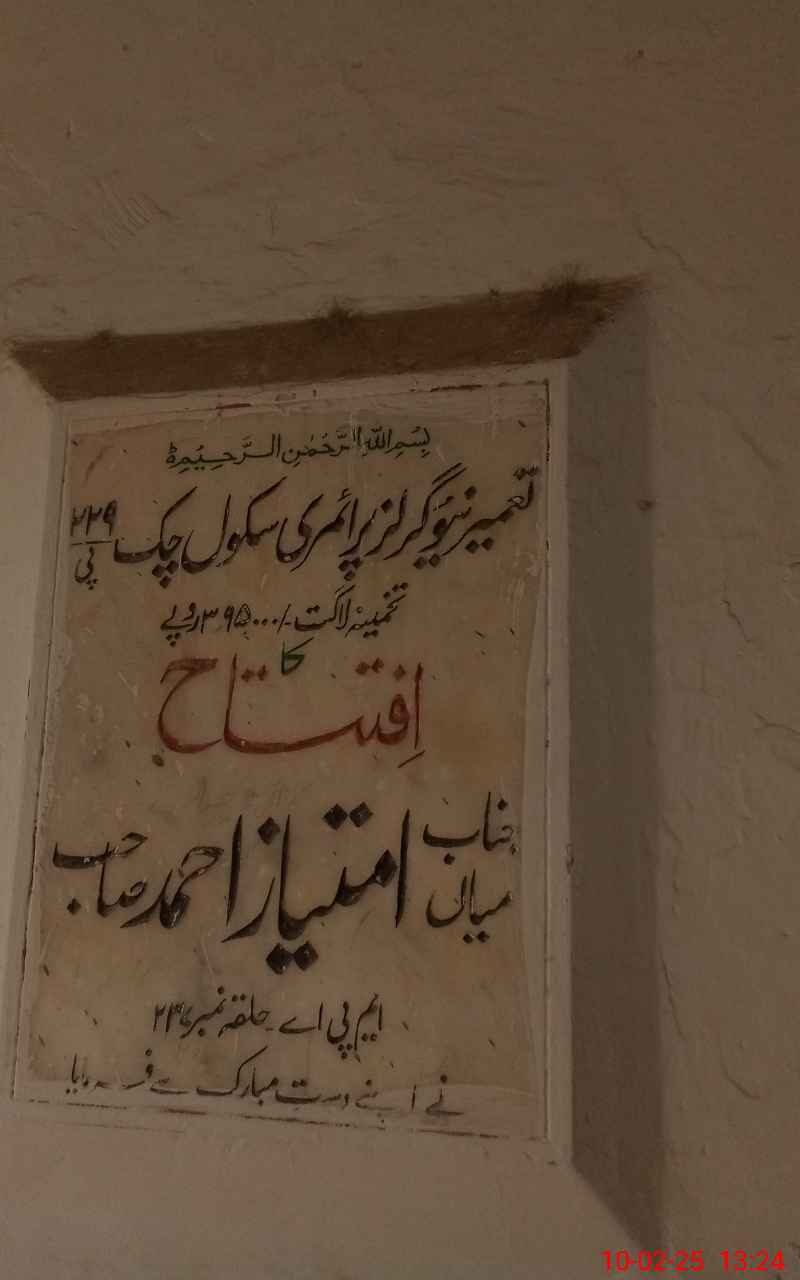 بِسْمِ اللّٰهِ الرَّحْمٰنِ الرَّحِيْمِ
تعمیر نیو گرلز پرائمری سکول چک ۲۲۹/پی
تخمینہ لاگت -/۳۹۵۰۰۰ روپے
کا
اِفتتاح
جناب میاں امتیاز احمد صاحب
ایم پی اے حلقہ نمبر
نے اپنے دست مبارک سے فرمایا
10-02-25 13:24